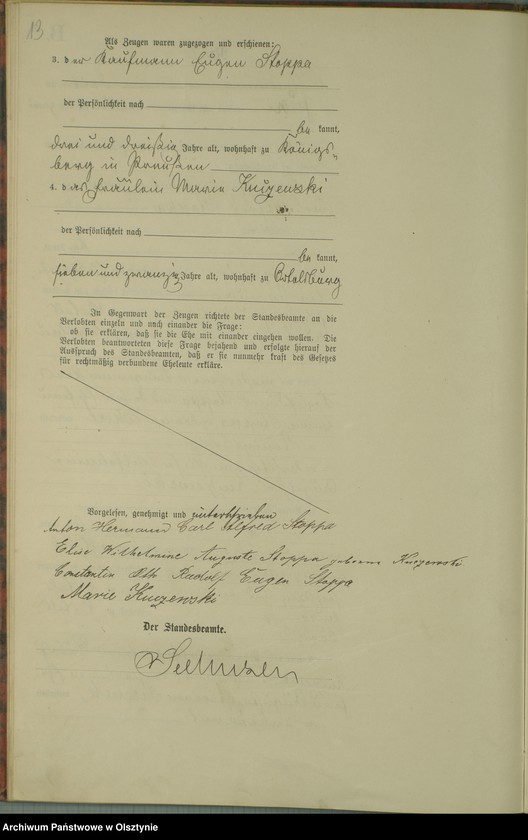 13
Als Zeugen waren zugezogen und erschienen:
3. der Kaufmann Eugen Stoppa
der Persönlichkeit nach
be kannt,
drei und dreißig Jahre alt, wohnhaft zu Königs-
berg in Preußen
4. das Fräulein Marie
der Persönlichkeit nach
be kannt,
sieben und zwanzig Jahre alt, wohnhaft zu Ortelsburg
In Gegenwart der Zeugen richtete der Standesbeamte an die
Verlobten einzeln und nach einander die Frage:
ob sie erklären, daß sie die Ehe mit einander eingehen wollen. Die
Verlobten beantworteten diese Frage bejahend und erfolgte hierauf der
Ausspruch des Standesbeamten, daß er sie nunmehr kraft des Gesetzes
für rechtmäßig verbundene Eheleute erkläre.
Vorgelesen, genehmigt und unterschrieben
Anton Hermann Carl Alfred Stoppa
Elise Wilhelmine Auguste Stoppa geborene
Constantin Otto Rudolf Eugen Stoppa
Marie
Der Standesbeamte.
Archiwum Państwowe w Olsztynie